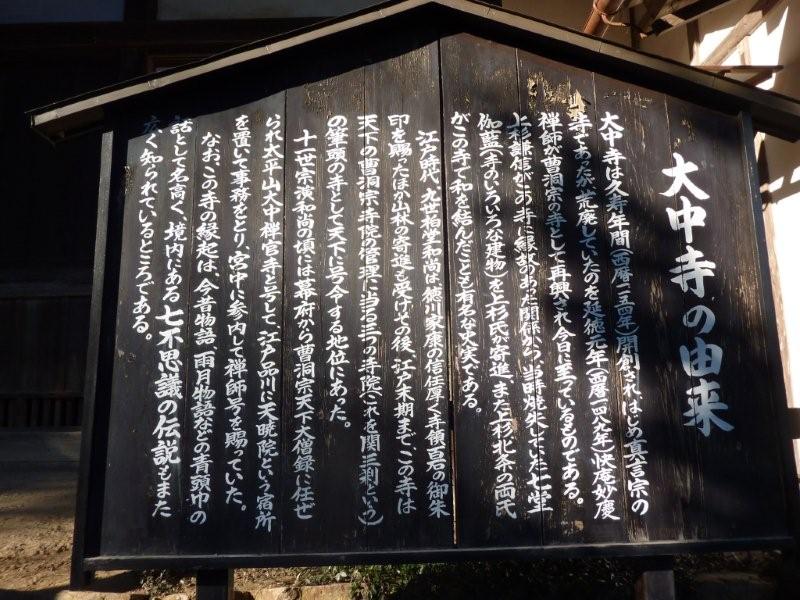 大中寺の由来
大中寺は久寿年間(西暦一一五四年)開創されはじめ真言宗の
寺であったが荒廃していたのを延徳元年(西暦一四八九年)快庵妙慶
禅師が曹洞宗の寺として再興され今日に至っているものである。
上杉謙信がこの寺に縁故のあった関係から、当時焼失していた七堂
伽藍(寺のいろいろな建物)を上杉氏が寄進、また上杉北条の両氏
がこの寺で和を結んだことも有名な史実である。
江戸時代、九世柏堂和尚は、徳川家康の信任厚く寺領百石の御朱
印を賜ったほか山林の寄進も受けその後、江戸末期まで、この寺は
天下の曹洞宗寺院の管理に当る三つの寺院(これを関三刹という)
の筆頭の寺として天下に号令する地位にあった。
十一世宗演和尚の頃には幕府から曹洞宗天下大僧録に任ぜ
られ太平山大中禅官寺と号して、江戸品川に天暁院という宿所
を置いて事務をとり、宮中に参内して禅師号を賜っていた。
なお、この寺の縁起は、今昔物語、雨月物語などの青頭巾の
話として名高く、境内にある七不思議の伝説もまた
広く知られているところである。